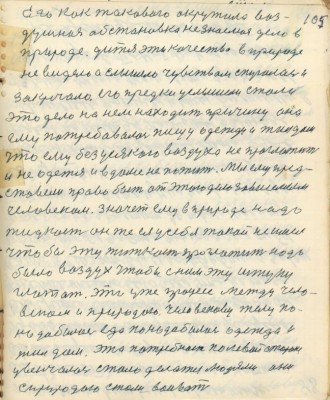 105
его как такового окружила воз-
душная обстановка незнаемая дело в
природе. дитя это качество в природе
не видело а слышало чувствовало испугалось и
закричало, его предки услышали стали
это дело на нем находить причину она
ему потребовалась пищу одежду и жилдом
что ему без усякого воздуха не проглотить
и не одется и в доме не пожить. Мы ему пред-
ставели право быть от этого дела зависимым
человеком. Значет ему в природе надо
жидкост он же с у себя такой не имел
чтобы эту житкост проглотить надо
было воздух чтобы с ним эту штуку
глотат, это уже процес между чело-
веком и природою, человекову телу по-
надобилась еда понадобилас одежда и
жил дом, эта потребност половой сторон
увеличался стало делатся людями они
с природою стали воеват